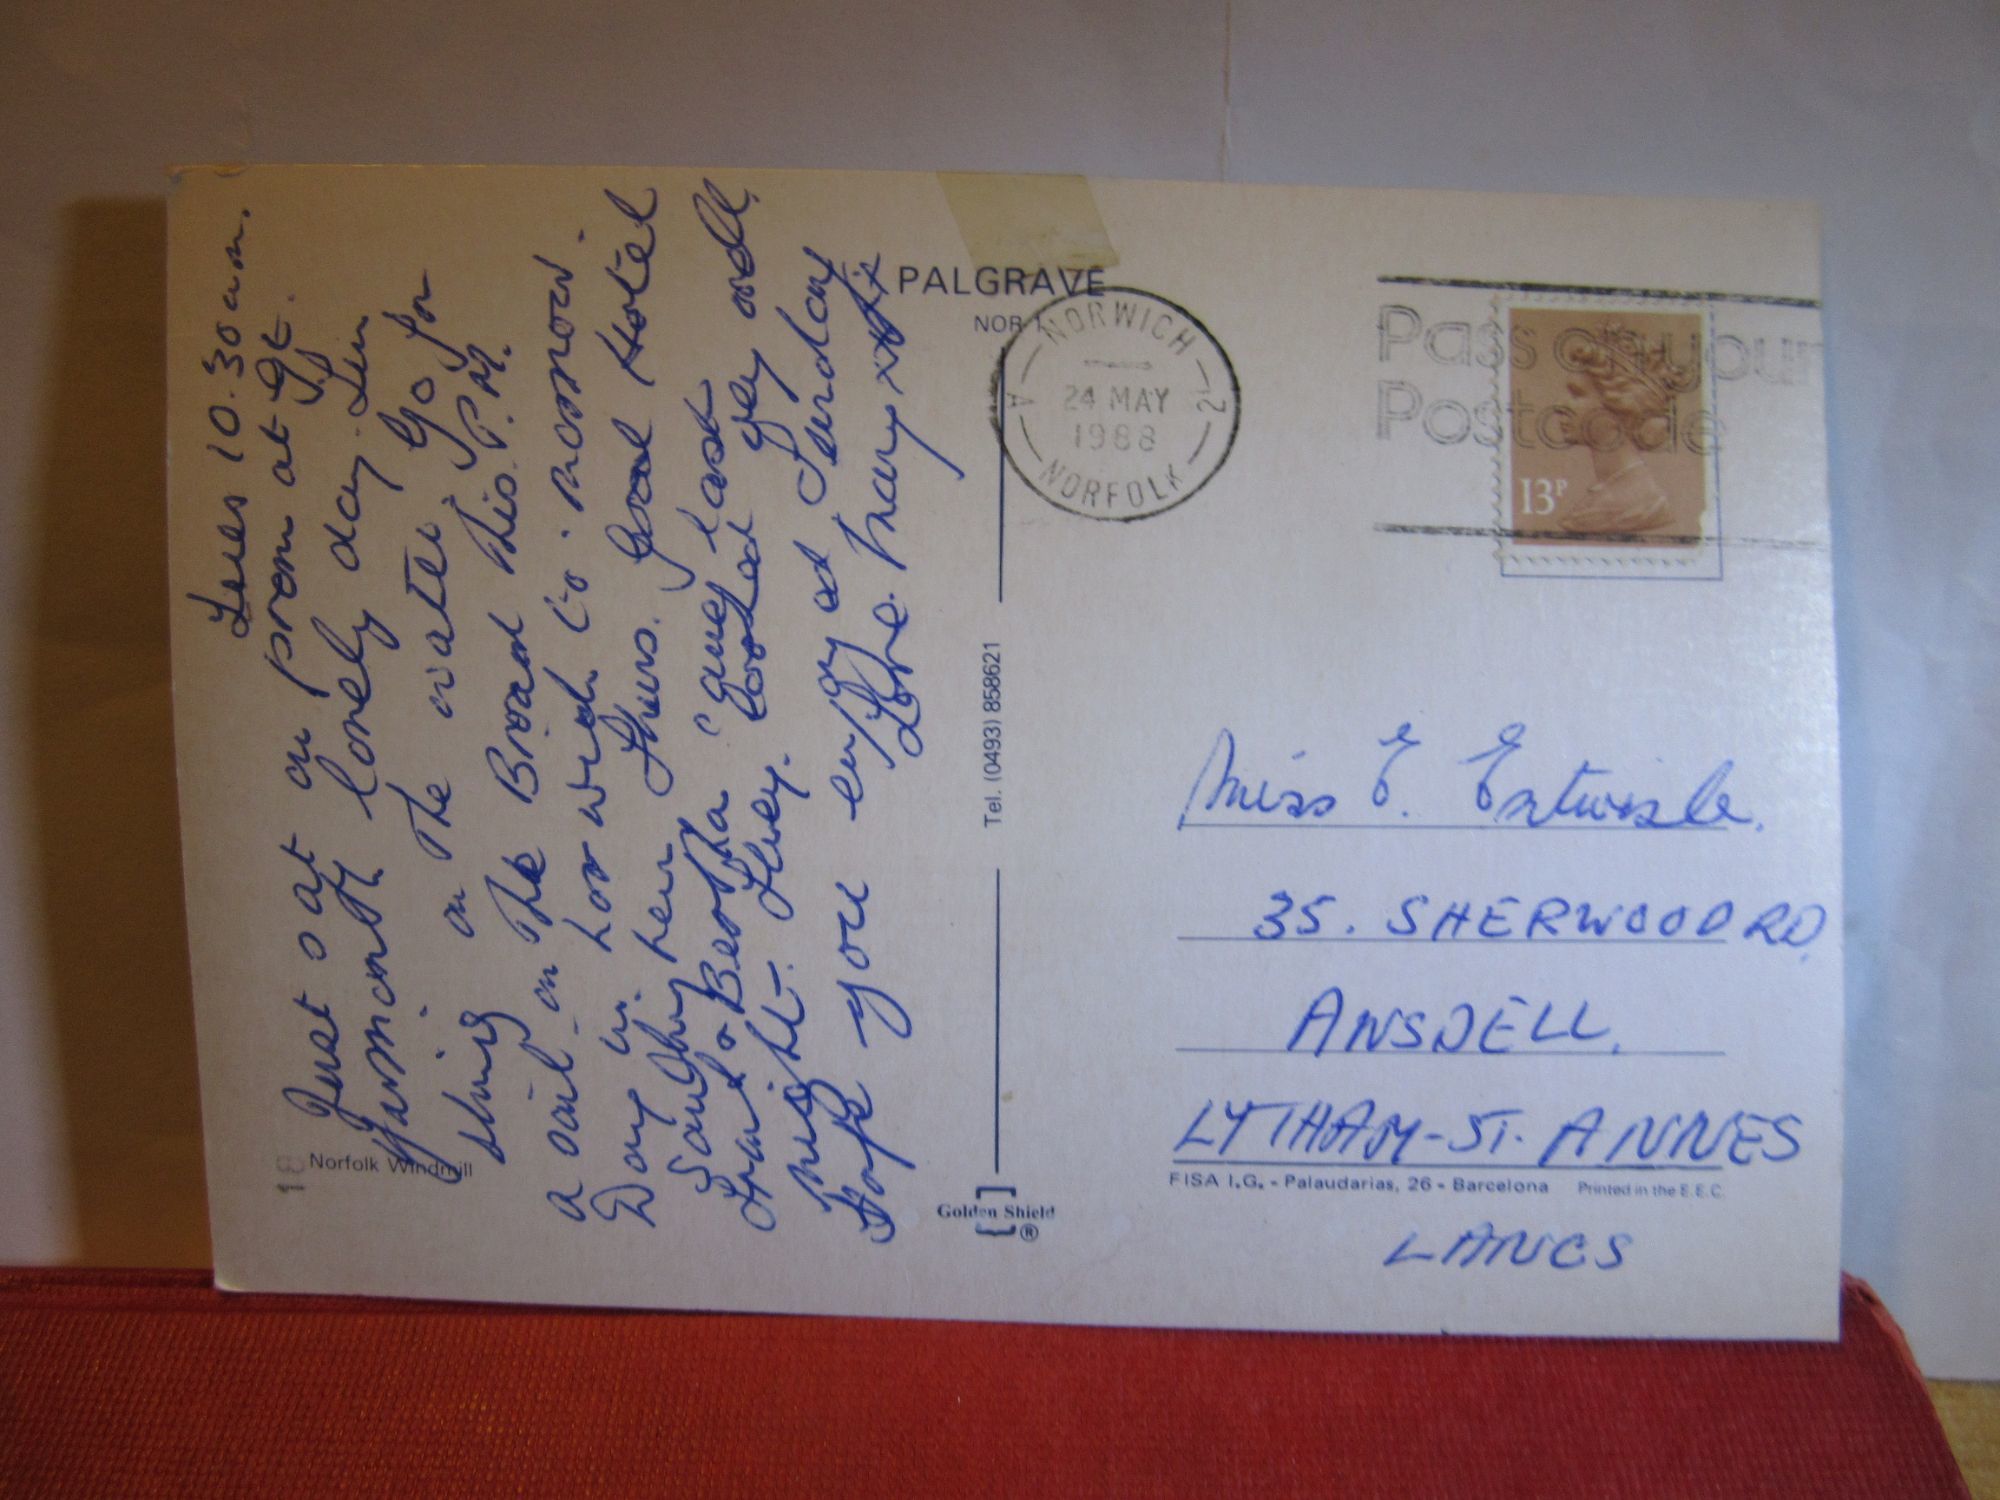 Tues 10.30am.
Just sat on prom at Gt.
Yarmouth lovely day. Sun
shing on the water. Go for
a sail on the Broad this P.M.
Day in Norwich to-morrow
Sandhy her Thurs. Good Hotel
Frank & Bertha came last
night. They looked very well.
Hope you enjoyed Sunday
Love. Mary xxxx
Norfolk Windmill
18
PALGRAVE
NOR 1
Tel. (0493) 858621
Golden Shield
®
NORWICH
A 2
24 MAY
1988
NORFOLK
Pass on your
Postcode
13P
Miss E. Entwisle.
35. SHERWOOD RD.
ANSDELL.
LYTHAM-ST. ANNES
FISA I.G. - Palaudarias, 26 - Barcelona Printed in the E.E.C.
LANCS